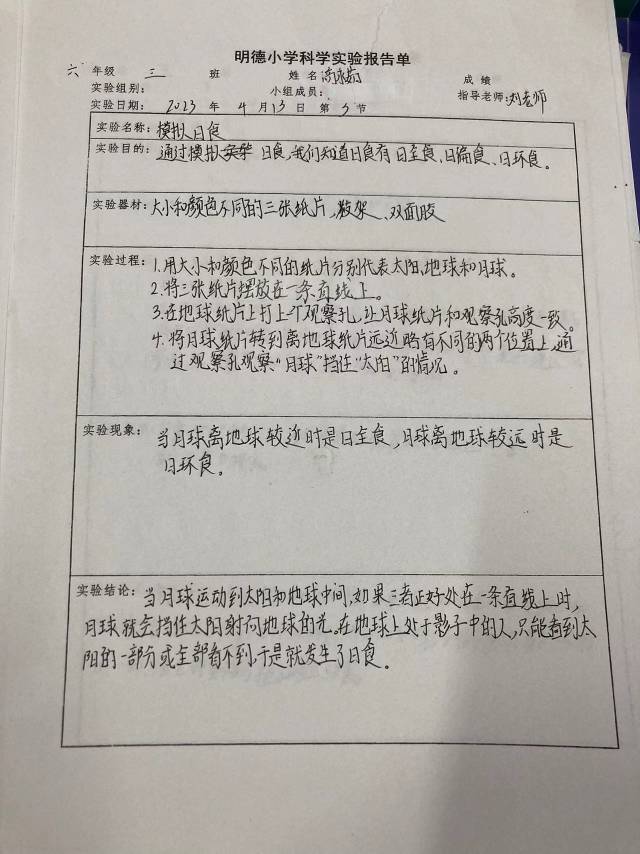 明德小学科学实验报告单
六 年级 三 班 姓名 成绩
实验组别: 小组成员: 指导老师:刘老师
实验日期: 2023 年 4 月 13 日 第 5 节
实验名称:模拟日食
实验目的:通过模拟实验日食,我们知道日食有日全食、日偏食、日环食。
实验器材:大小和颜色不同的三张纸片、支架、双面胶
实验过程:1.用大小和颜色不同的纸片分别代表太阳、地球和月球。
2.将三张纸片摆放在一条直线上。
3.在地球纸片上打上个观察孔,让月球纸片和观察孔高度一致。
4.将月球纸片转到离地球纸片远近略有不同的两个位置上,通
过观察孔观察“月球”挡住“太阳”的情况。
实验现象:当月球离地球较近时是日全食,月球离地球较远时是
日环食。
实验结论:当月球运动到太阳和地球中间,如果三者正好处在一条直线上时,
月球就会挡住太阳射向地球的光,在地球上处于影子中的人,只能看到太
阳的一部分或全部看不到,于是就发生了日食。